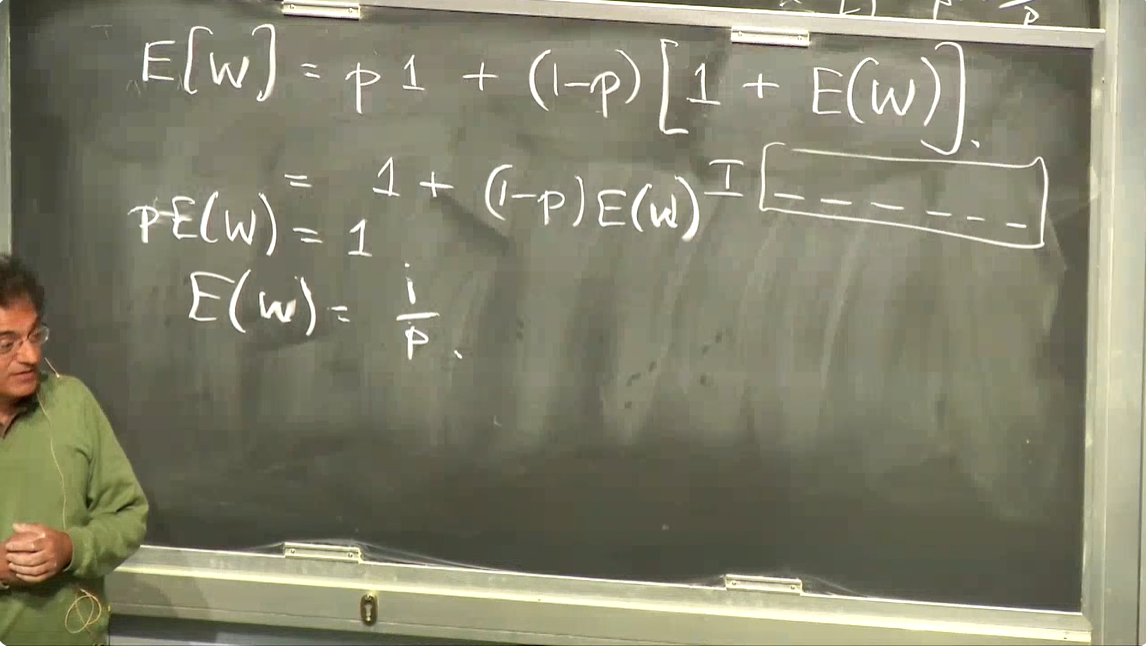 E[W] = p 1 + (1-p) [1 + E(W)].
= 1 + (1-p) E(W) I [_ _ _ _ _ _]
pE(W) = 1
E(W) = 1/p.